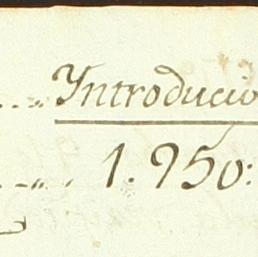 Yntroducio
1.950: